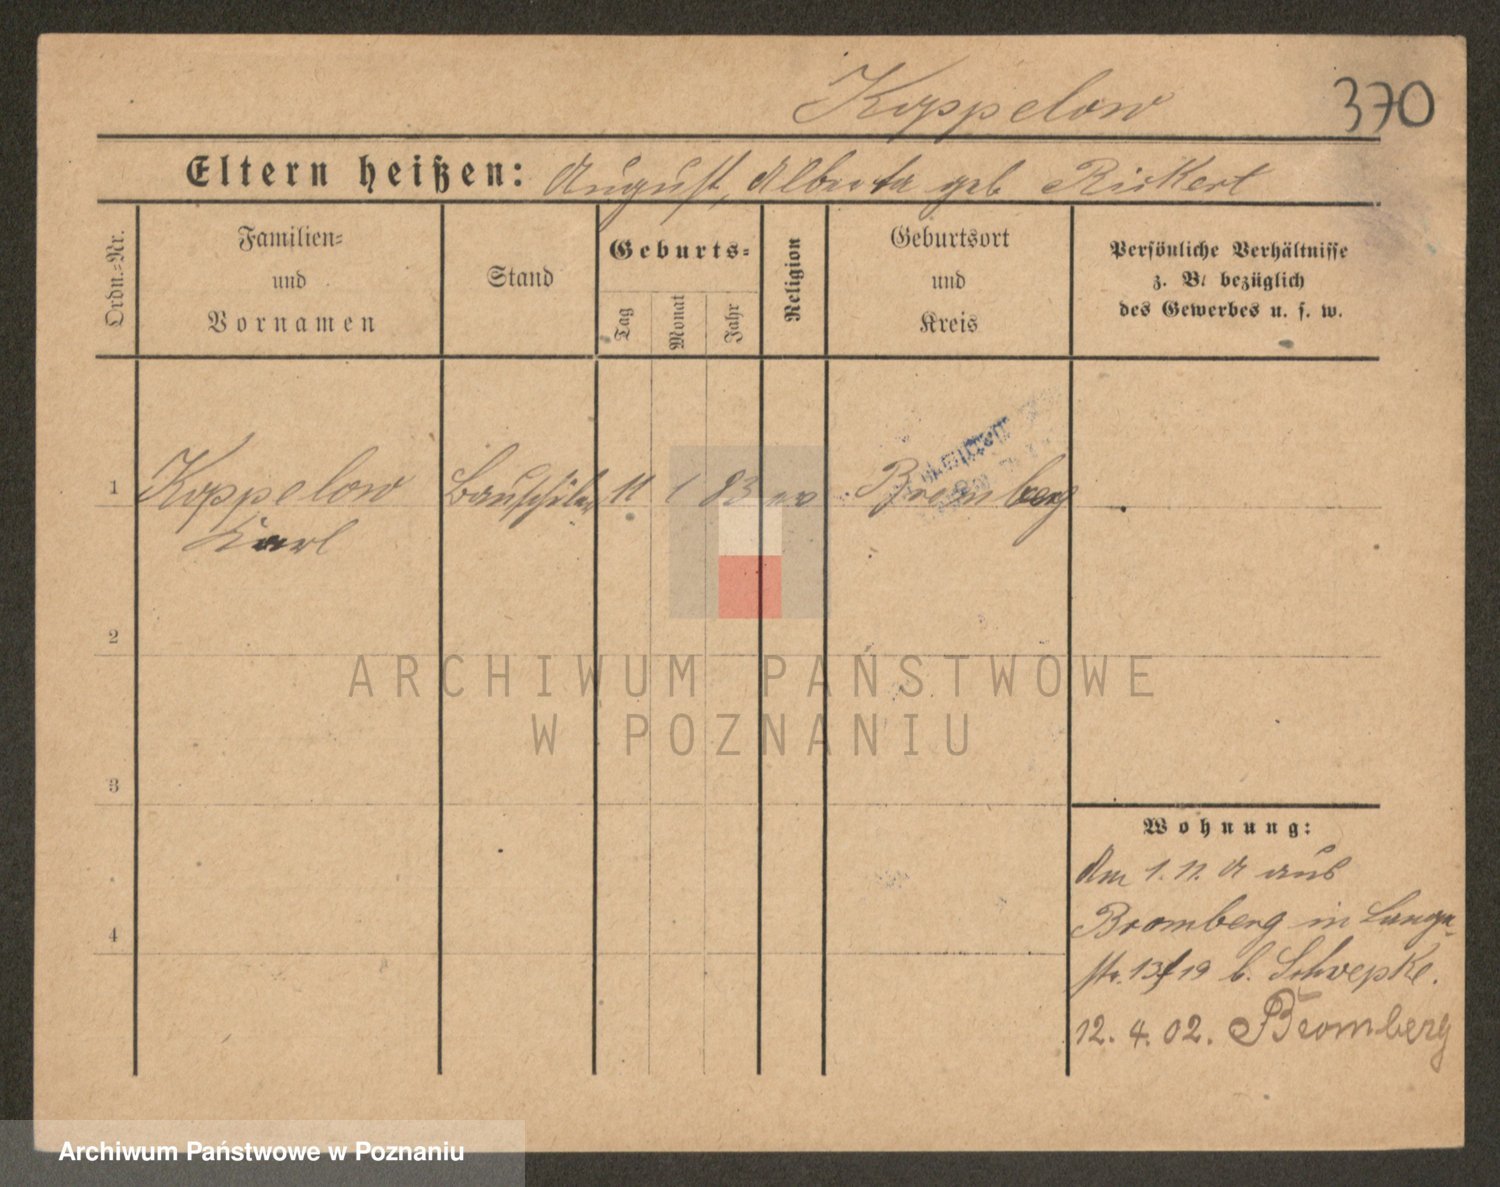 Koppelow 370
Eltern heißen: August, Alberta geb Rickert
Ordn.-Nr.
Familien-
und
Vornamen
Stand
Geburts-
Tag
Monat
Jahr
Religion
Geburtsort
und
Kreis
Persönliche Verhältnisse
z. B. bezüglich
des Gewerbes u. s. w.
1 Koppelow Bauschüler 11 1 83 ev Bromberg
Karl
2
3
4
Wohnung:
Am 1. 11. 01 aus
Bromberg in
str. 19 b. Schoepke.
12. 4. 02. Bromberg
ARCHIWUM PAŃSTWOWE
W POZNANIU
Archiwum Państwowe w Poznaniu